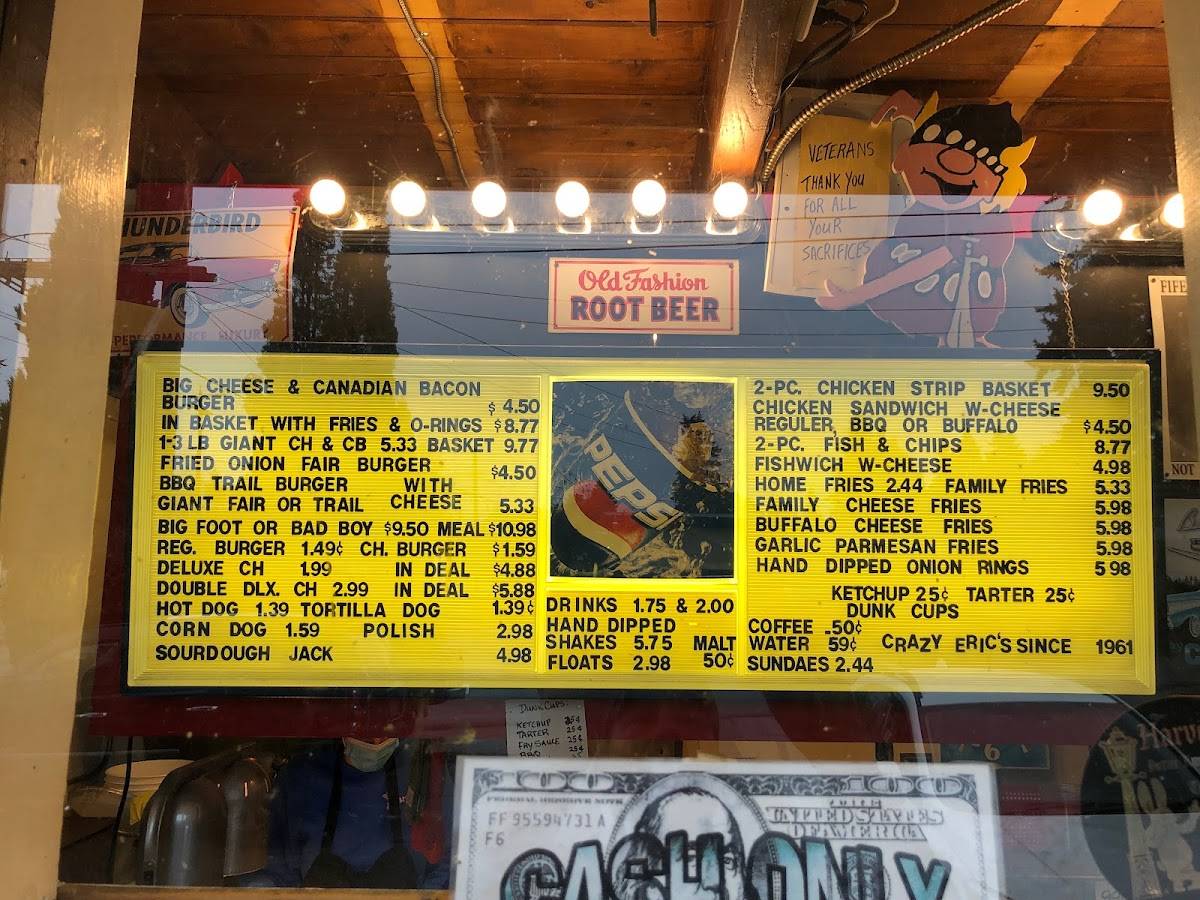 VETERANS
THANK YOU
FOR ALL
YOUR
SACRIFICES
THUNDERBIRD
Old Fashion
ROOT BEER
FIFE
NOT
BIG CHEESE & CANADIAN BACON
BURGER $ 4.50
IN BASKET WITH FRIES & O-RINGS $8.77
1-3 LB GIANT CH & CB 5.33 BASKET 9.77
FRIED ONION FAIR BURGER $4.50
BBQ TRAIL BURGER WITH
GIANT FAIR OR TRAIL CHEESE 5.33
BIG FOOT OR BAD BOY $9.50 MEAL $10.98
REG. BURGER 1.49¢ CH. BURGER $1.59
DELUXE CH 1.99 IN DEAL $4.88
DOUBLE DLX. CH 2.99 IN DEAL $5.88
HOT DOG 1.39 TORTILLA DOG 1.39¢
CORN DOG 1.59 POLISH 2.98
SOURDOUGH JACK 4.98
PEPSI
DRINKS 1.75 & 2.00
HAND DIPPED
SHAKES 5.75 MALT
FLOATS 2.98 50¢
2-PC. CHICKEN STRIP BASKET 9.50
CHICKEN SANDWICH W-CHEESE
REGULER, BBQ OR BUFFALO $4.50
2-PC. FISH & CHIPS 8.77
FISHWICH W-CHEESE 4.98
HOME FRIES 2.44 FAMILY FRIES 5.33
FAMILY CHEESE FRIES 5.98
BUFFALO CHEESE FRIES 5.98
GARLIC PARMESAN FRIES 5.98
HAND DIPPED ONION RINGS 5 98
KETCHUP 25¢ TARTER 25¢
DUNK CUPS
COFFEE .50¢
WATER 59¢ CRAZY ERIC'S SINCE 1961
SUNDAES 2.44
DUNK CUPS.
KETCHUP 25¢
TARTER 25¢
FRY SAUCE 25¢
BBQ 25¢
100 100
FEDERAL RESERVE NOTE
THE
UNITED STATES
OF AMERICA
FF 95594731 A
F6
CASH ONLY